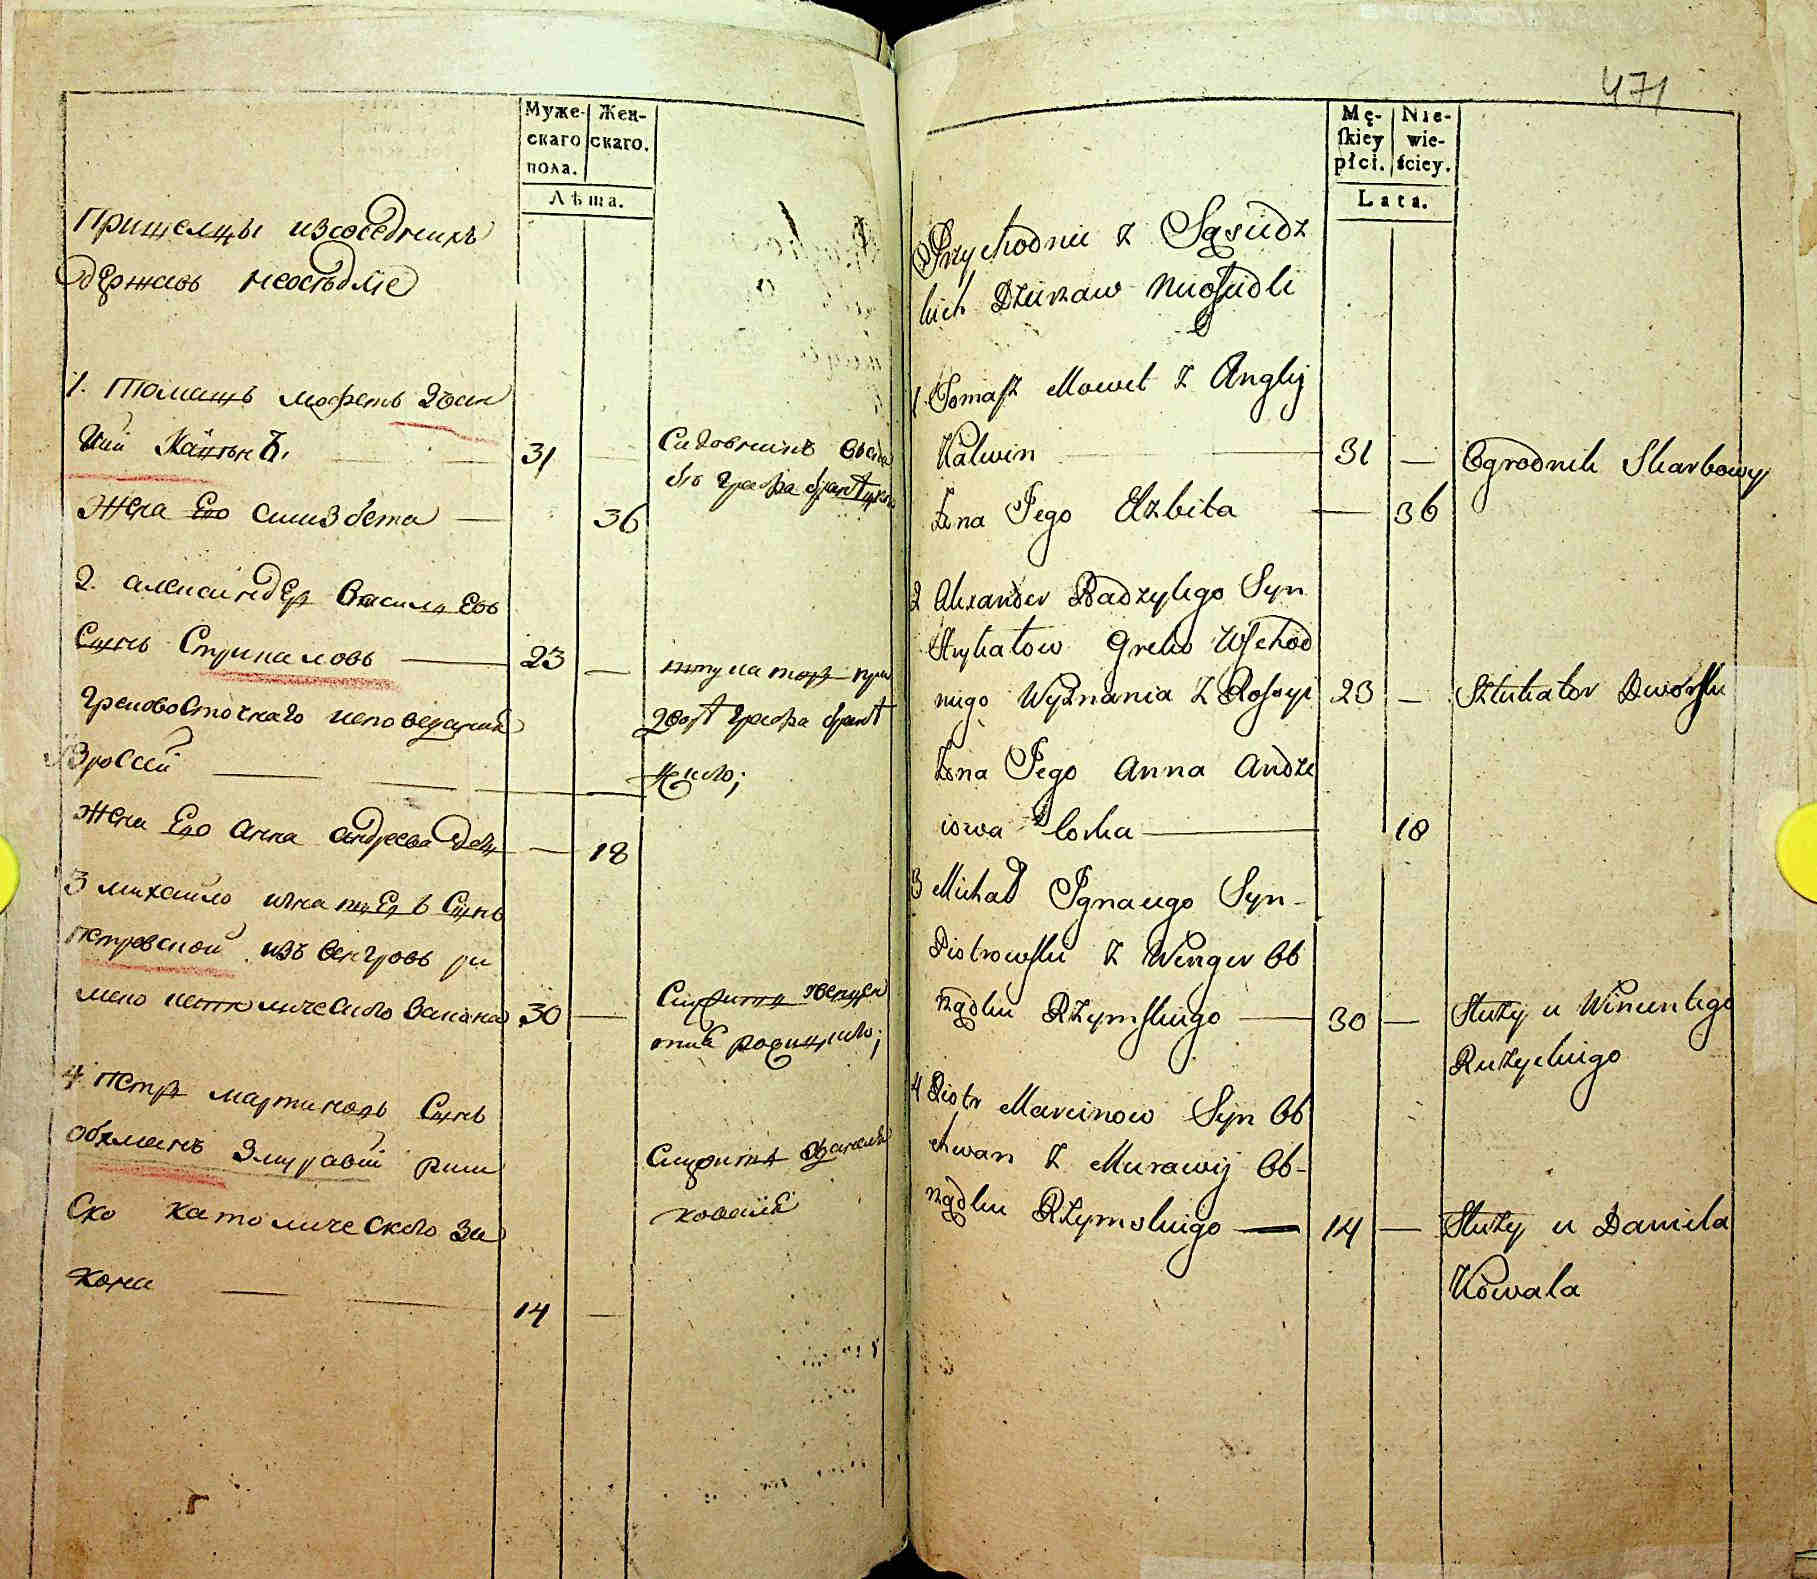 Муже- Жен-
скаго скаго.
пола.
Лѣта.
Пришелцы изсоседнихъ
державъ неоседлие
1. Томашъ мофетъ Зъан
глии
31
Садовникъ
графа
Жена Его елизбета 36
2. александеръ Василъевъ
Сынъ Стрикаловъ 23 —
Грековосточнаго исповедания
Зросеи
графа
Жена Его анна андреева дочь — 18
3 михаило игнатьевъ Сынъ
петровской изъ венгровъ ри
мско католическаго закона 30 —
Служитъ
4 петръ мартиновъ Сынъ
Змуравіи рим
Ско католическаго За
кона 14 —
Служитъ
коваля
471
Mę- Nie-
ſkiey wie-
płci. ściey.
Lata.
Przychodnie z Sąsiedz
kich Dzierzaw Nieosiedli
1 Tomasz Mowet z Anglij
Kalwin 31 — Ogrodnik Skarbowy
Żona Jego Elzbieta — 36
2 Alexander Badzylego Syn
Strykałow Greko Wschod
niego Wyznania z Rossyi 23 — Sztukator Dworski
Żona Jego Anna Andze
iowa Corka 18
3 Michał Ignacego Syn
Piotrowski z Wengier Ob
rządku Rzymskiego 30 — Służy u Wincentego
Rużyckiego
4 Piotr Marcinow Syn Ob
chwan z Murawij Ob-
rządku Rzymskiego — 14 — Służy u Daniela
Kowala